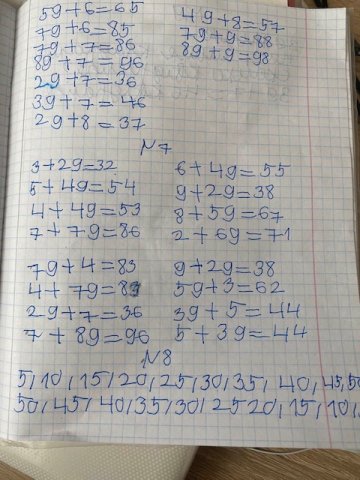 59+6=65 49+8=57
79+6=85 79+9=88
79+7=86 89+9=98
89+7=96
29+7=36
39+7=46
29+8=37
№7
3+29=32 6+49=55
5+49=54 9+29=38
4+49=53 8+59=67
7+79=86 2+69=71
79+4=83 9+29=38
4+79=83 59+3=62
29+7=36 39+5=44
7+89=96 5+39=44
№8
5,10,15,20,25,30,35,40,45,50
50,45,40,35,30,25 20,15,10,